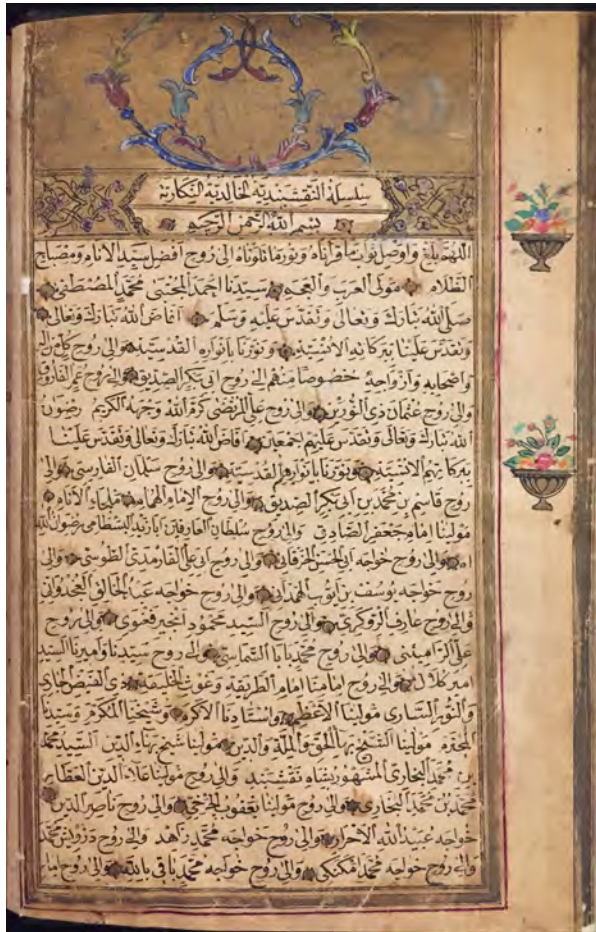 سلسلة النقشبندية الخالدية النكارية
بسم الله الرحمن الرحيم
اللهم بلغ واوصل ثواب ما قرأناه ونور ما تلوناه الى روح افضل سيد الانام ومصباح
الظلام مولى العرب والعجم سيدنا احمد المجتبى محمد المصطفى
صلى الله تبارك وتعالى وتقدس عليه وسلم افاض الله تبارك وتعالى
وتقدس علينا ببركاته الانسية ونورنا بانواره القدسية والى روح كل من اله
واصحابه وازواجه خصوصا منهم الى روح ابى بكر الصديق والى روح عمر الفاروق
والى روح عثمان ذى النورين والى روح على المرتضى كرم الله وجهه الكريم رضوان
الله تبارك وتعالى وتقدس عليهم اجمعين افاض الله تبارك وتعالى وتقدس علينا
ببركاتهم الانسية ونورنا بانوارهم القدسية والى روح سلمان الفارسى والى
روح قاسم بن محمد بن ابى بكر الصديق والى روح الامام الهمام الانام
مولينا امام جعفر الصادق والى روح سلطان العارفين ابايزيد البسطامى رضوان الله
والى روح خواجه ابى الحسن الخرقانى والى روح ابى على الفارمدى الطوسى والى
روح خواجه يوسف بن ايوب الهمدانى والى روح خواجه عبد الخالق الغجدوانى
والى روح عارف الريوكرى والى روح السيد محمود انجير فغنوى والى روح
على الرامينى والى روح محمد بابا السماسى والى روح سيدنا واميرنا السيد
امير كلال والى روح امامنا امام الطريقة وغوث الخليقة ذى الفيض الجارى
والنور السارى مولينا الاعظم واستادنا الاكرم وشيخنا المكرم وسيدنا
المحترم مولينا الشيخ بهاء الحق والملة والدين مولينا شيخ بهاء الدين السيد محمد
بن محمد البخارى المشهور بشاه نقشبند والى روح مولينا علاء الدين العطار
محمد بن محمد البخارى والى روح مولينا يعقوب الچرخى والى روح ناصر الدين
خواجه عبيد الله الاحرار والى روح خواجه محمد زاهد والى روح درويش محمد
والى روح خواجه محمد امكنكى والى روح خواجه محمد باقى بالله والى روح امام